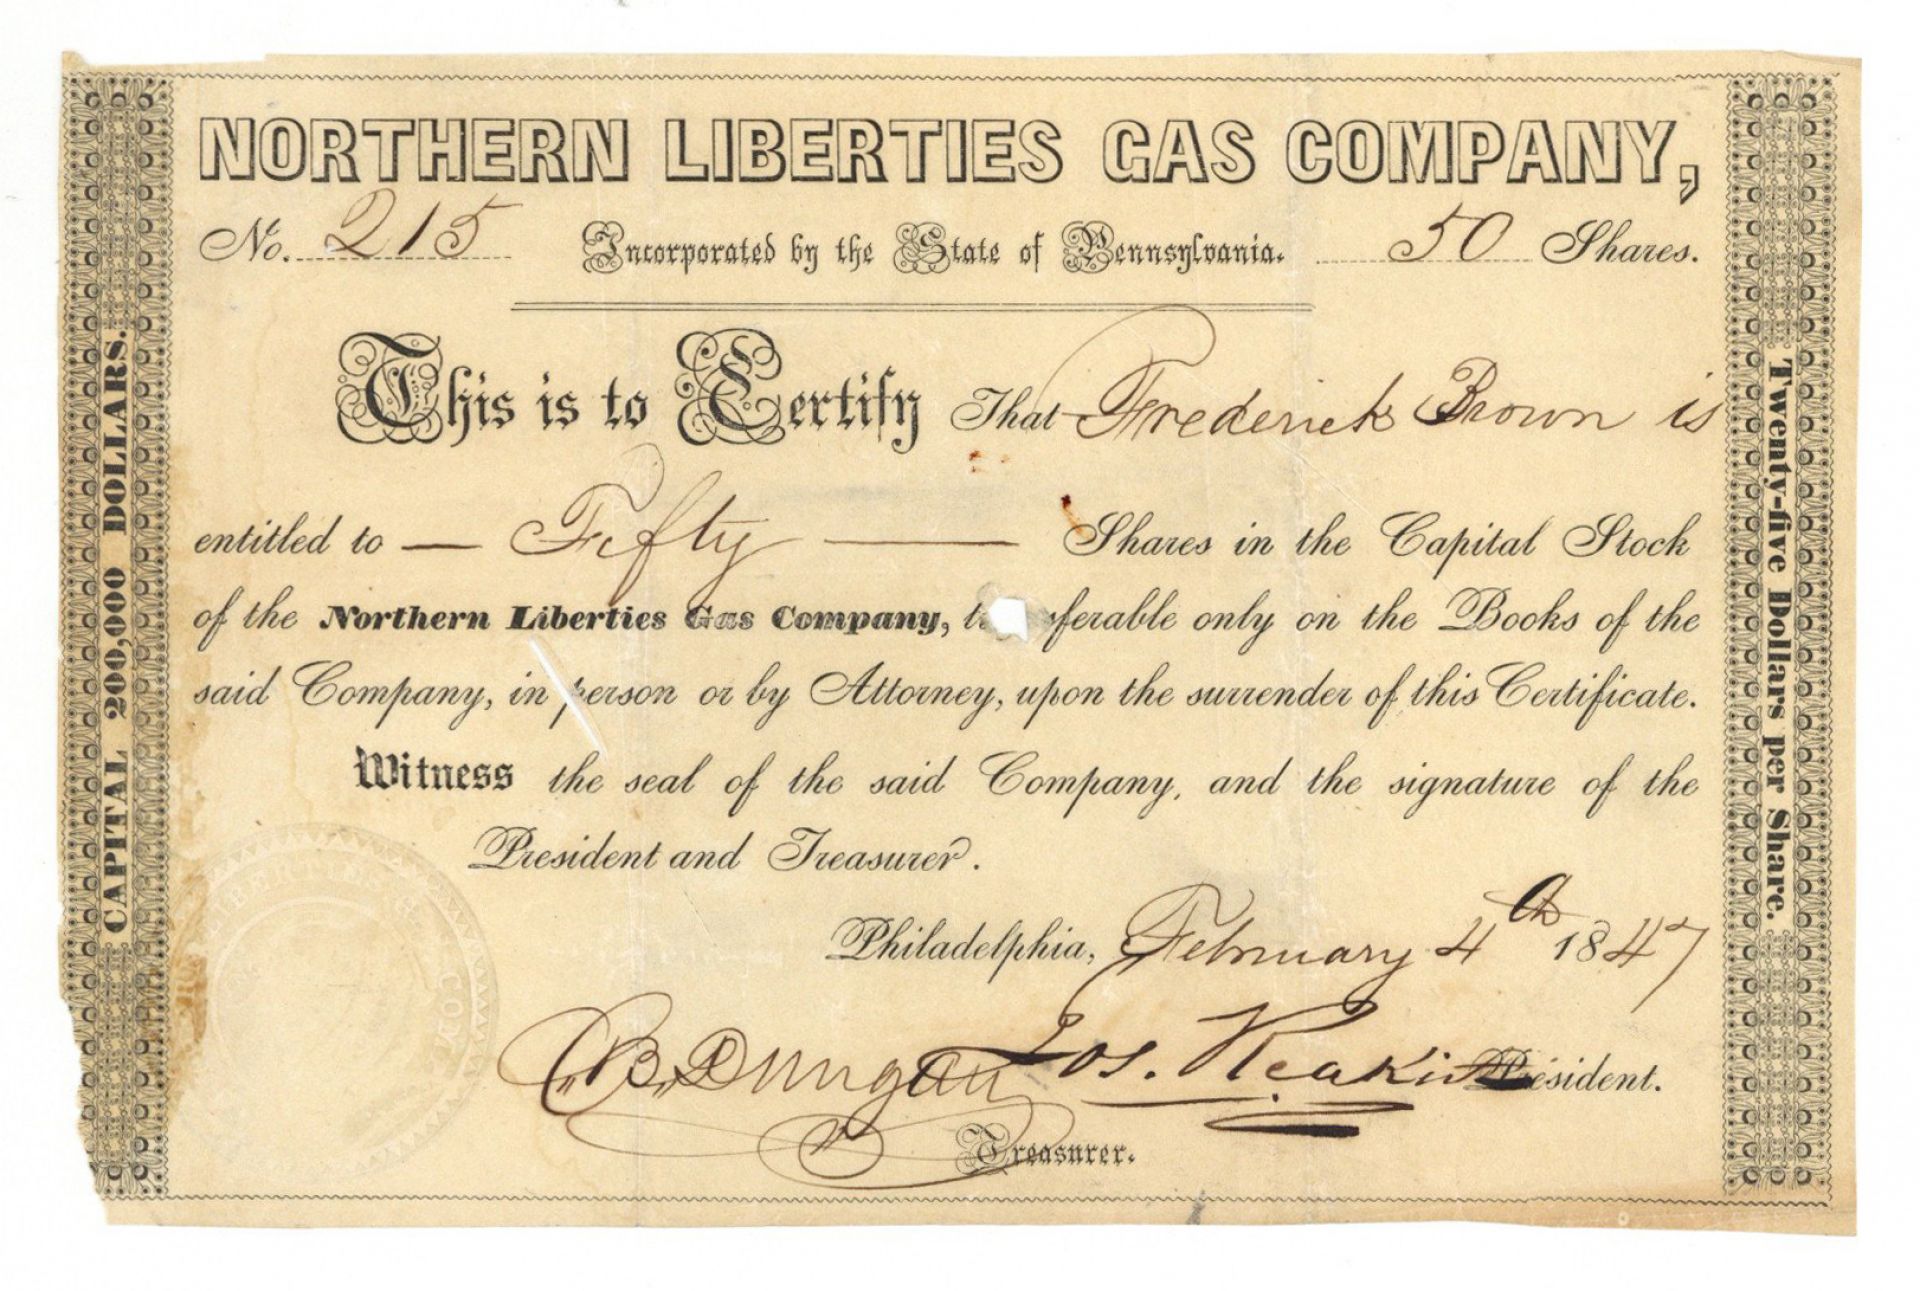 NORTHERN LIBERTIES GAS COMPANY,
No. 215 Incorporated by the State of Pennsylvania. 50 Shares.
This is to Certify That Frederick Brown is
entitled to — Fifty — Shares in the Capital Stock
of the Northern Liberties Gas Company, t sferable only on the Books of the
said Company, in person or by Attorney, upon the surrender of this Certificate.
Witness the seal of the said Company, and the signature of the
President and Treasurer.
Philadelphia, February 4th 1847
Jos. President.
B. Dungan
Treasurer.
CAPITAL 200,000 DOLLARS.
Twenty-five Dollars per Share.
LIBERTIES G COMY